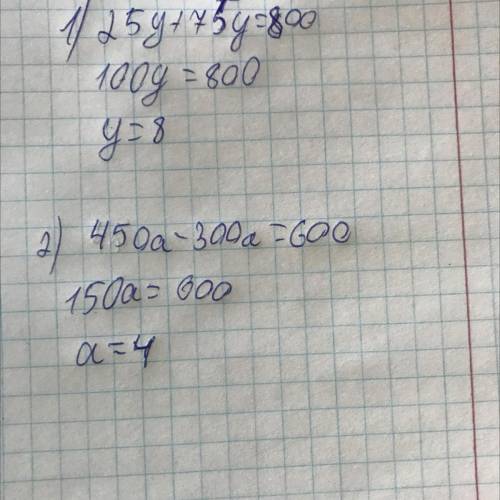 1) 25y+75y=800
100y=800
y=8
2) 450a-300a=600
150a=600
a=4